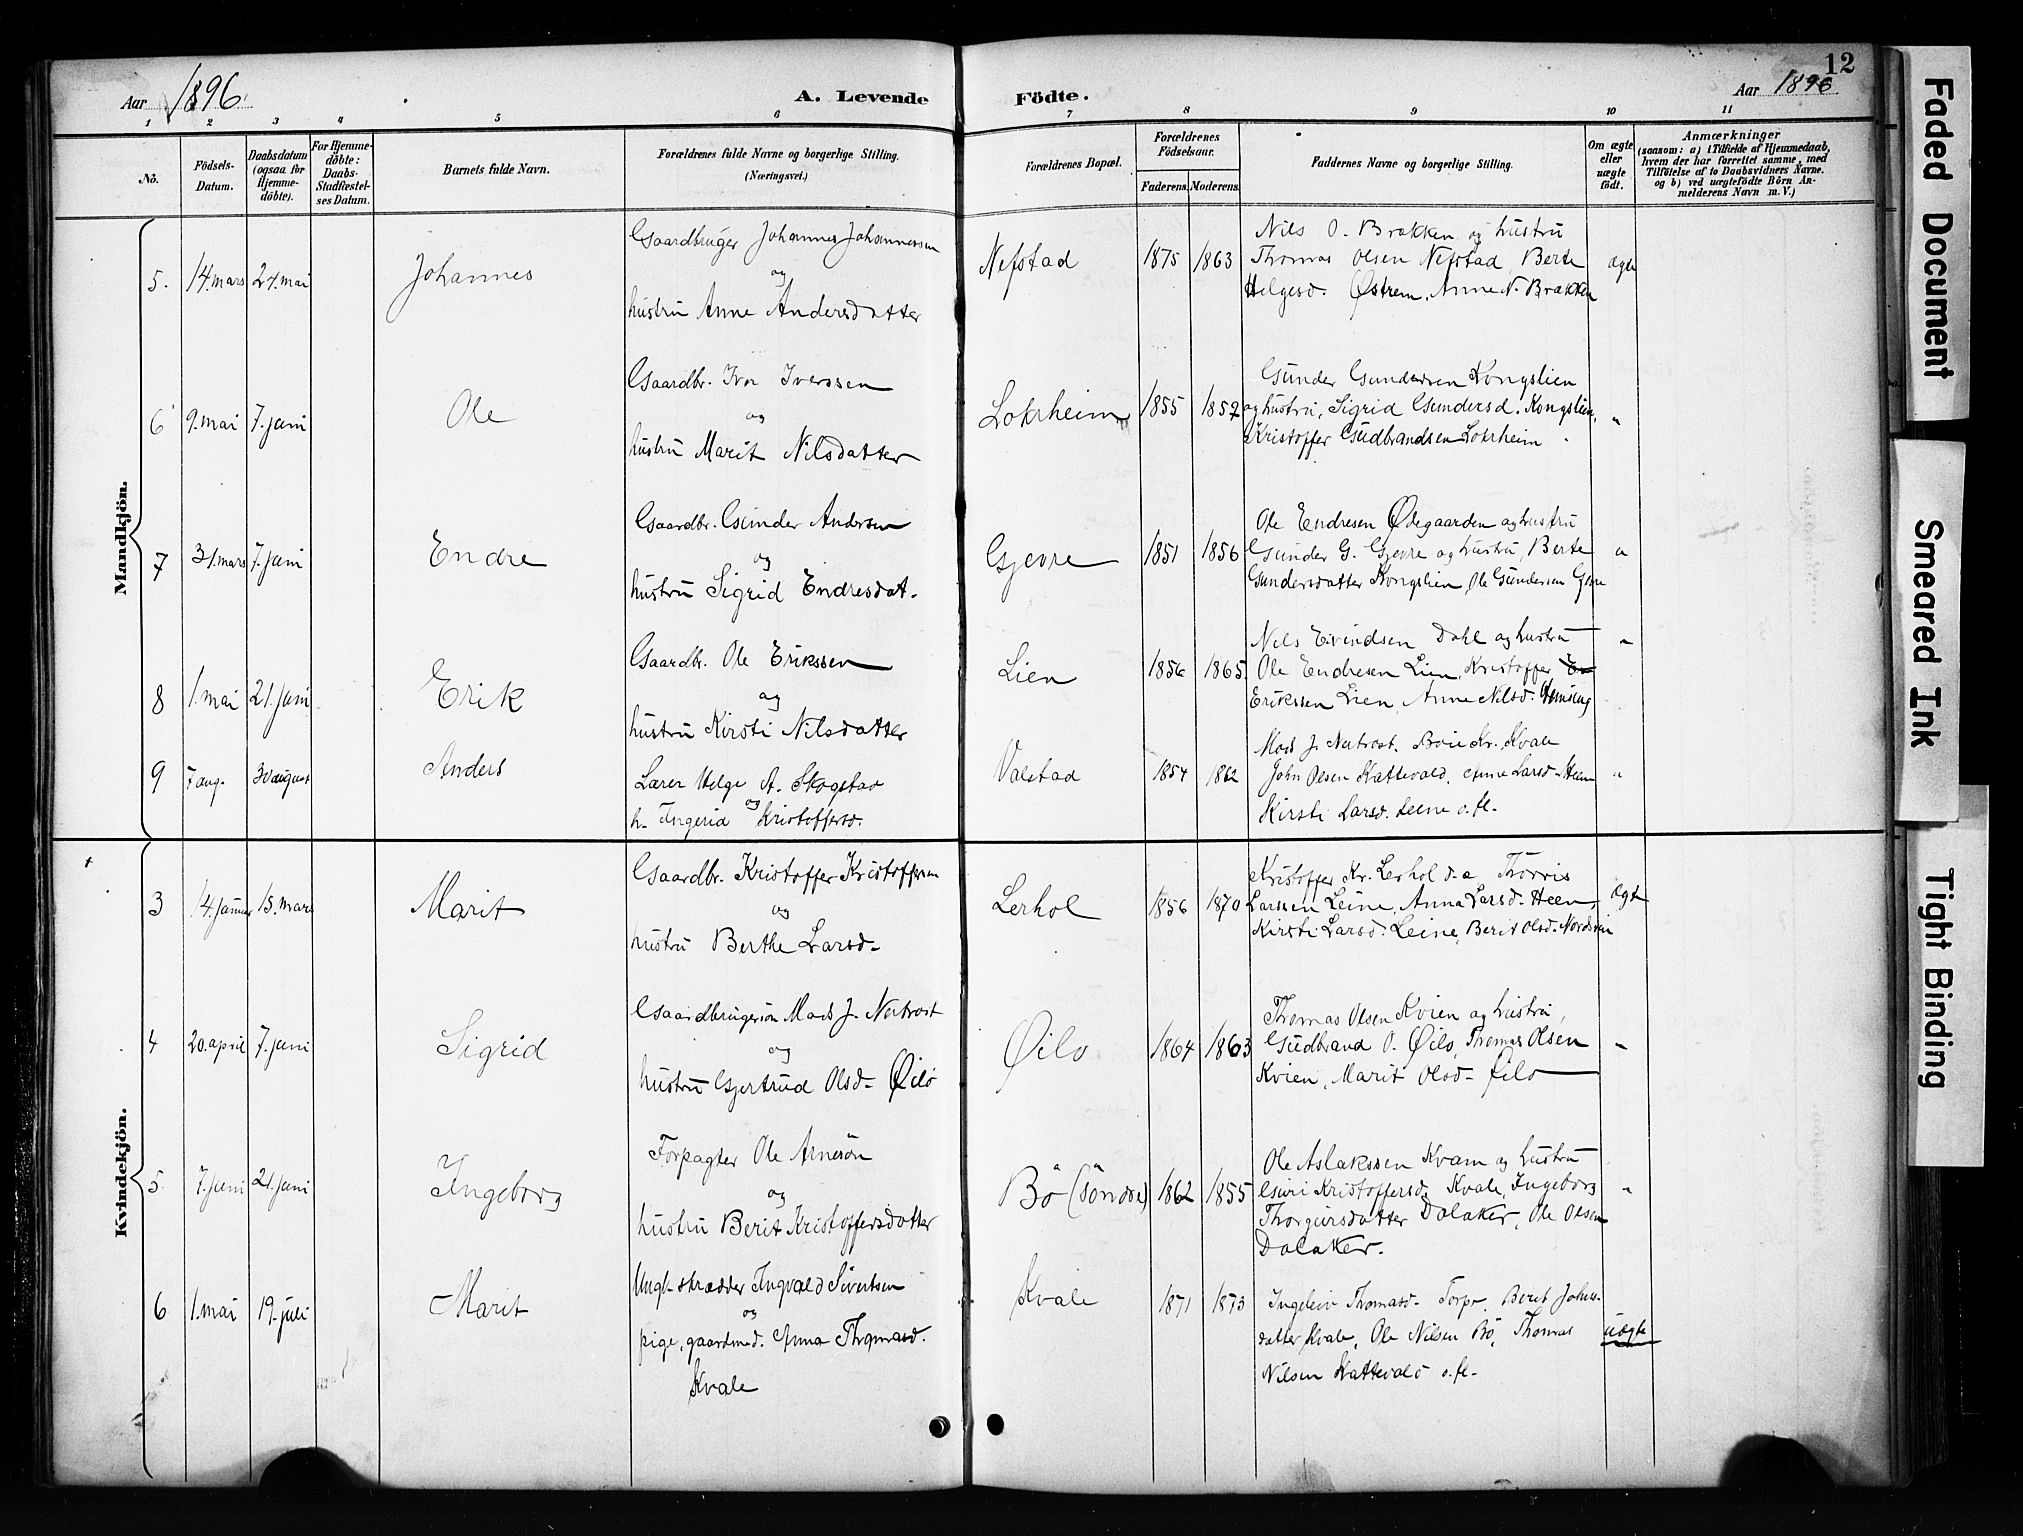 12
Aar 1896
A. Levende
Födte.
Aar 1896
1 2 3 4 5 6 7 8 9 10 11
No.
Födsels-
Datum.
Daabsdatum
(ogsaa for
Hjemme-
döbte).
For Hjemme-
döbte:
Daabs-
Stadfæstel-
ses Datum.
Barnets fulde Navn.
Forældrenes fulde Navne og borgerlige Stilling.
(Næringsvei.)
Forældrenes Bopæl.
Forældrenes
Födselsaar.
Faderens. Moderens.
Faddernes Navne og borgerlige Stilling.
Om ægte
eller
uægte
födt.
Anmærkninger
(saasom: a) i Tilfælde af Hjemmedaab,
hvem der har forrettet samme, med
Tilföielse af to Daabsvidners Navne.
og b) ved uægtefödte Börn An-
melderens Navn m. V.)
Mandkjön.
5. 14. mars 24. mai
Johannes
Gaardbruger Johannes Johannessen
og
hustru Anne Andersdatter
Nefstad
1875 1863
Nils O. Brakken og hustru
Thomas Olsen Nefstad, Berte
Helgesd. Østrem, Anne N. Brakken
ægte
6 9. mai 7. juni
Ole
Gaardbr. Ivar Iverssen
og
hustru Marit Nilsdatter
Lokrheim
1855 1857
Gunder Gundersen Kongslien
og hustru, Sigrid Gundersd. Kongslien,
Kristoffer Gudbrandsen Lokrheim
"
7 31. mars 7. juni
Endre
Gaardbr. Gunder Andersen
og
hustru Sigrid Endresdat.
Gjevre
1851 1856
Ole Endresen Ødegaarden og hustru
Gunder G. Gjevre og hustru, Berte
Gundersdatter Kongslien, Ole Gundersen Gjevre
"
8 1. mai 21. juni
Erik
Gaardbr. Ole Erikssen
og
hustru Kirsti Nilsdatter
Lien
1856 1865.
Nils Eivindsen Dahl og hustru
Ole Endresen Lien, Kristoffer
Erikssen Lien, Anne Nilsd. Hemsing
"
9 7 aug. 30 august
Anders
Lærer Helge A. Skogstad
og
h. Ingerid Kristoffersd.
Valstad
1854 1862
Mads J. Neutrost, Boie Kr. Kvale
John Olsen Kattevold, Anne Larsd. Heen
Kirsti Larsd. Leene o. fl.
"
Kvindekjön.
3 14. januar 15. mars
Marit
Gaardbr. Kristoffer Kristoffersen
og
hustru Berthe Larsd.
Lerhol
1856 1870
Kristoffer Kr. Lerhol d. a. Thorris
Larssen Leine, Anna Larsd. Heen,
Kirsti Larsd. Leine, Berit Olsd. Nordsvein
Ægte
4 20. april 7. juni
Sigrid
Gaardbrugersön Mads J. Neutrost
og
hustru Gjertrud Olsd. Øilo
Øilo
1864 1863
Thomas Olsen Kvien og hustru,
Gudbrand O. Øilo, Thomas Olsen
Kvien, Marit Olsd. Øilo
"
5. 7. juni 21. juni
Ingeborg
Forpagter Ole Arnesön
og
hustru Berit Kristoffersdatter
Bö (söndre)
1862 1855
Ole Aslakssen Kvam og hustru
Guri Kristoffersd. Kvale, Ingeborg
Thorgursdatter Dalaker, Ole Olsen
Dalaker.
"
6 1. mai 19. juli
Marit
Ungk. skrædder Ingvald Sivertsen
og
pige, gaardmd. Anna Thomasd.
Kvale
Kvale
1871 1873
Ingeleiv Thomasd. Torpe, Berit Johns-
datter Kvale, Ole Nilsen Bö, Thomas
Nilsen Kattevold o. fl.
uægte
Faded Document
Smeared Ink
Tight Binding